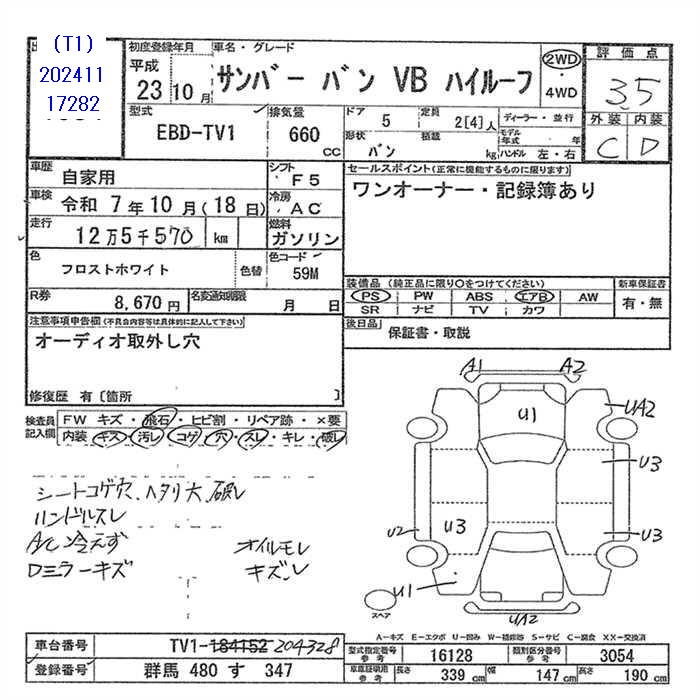 (T1)
202411
17282
初度登録年月
平成
23 10月
車名・グレード
サンバー バン VB ハイルーフ
2WD
・
4WD
評価点
3.5
外装 内装
C D
型式
EBD-TV1
排気量
660 CC
ドア 5
定員 2[4]人
形状 バン
積載 kg
ディーラー・並行
モデル年式 年
ハンドル 左・右
車歴 自家用
シフト F5
車検 令和 7年 10月(18日)
冷房 AC
走行 12万5千570 km
燃料 ガソリン
色 フロストホワイト 色替
色コード 59M
R券 8,670円
名変通知期限 月 日
セールスポイント(正常に機能するものに限ります)
ワンオーナー・記録簿あり
装備品(純正品に限り○をつけてください)
PS PW ABS エアB AW
SR ナビ TV カワ
新車保証書
有・無
後日品 保証書・取説
注意事項申告欄(不具合内容等は具体的に記入して下さい)
オーディオ取外し穴
修復歴 有〔箇所 〕
検査員記入欄
FW キズ・飛石・ヒビ割・リペア跡・×要
内装 キズ・汚レ・コゲ・穴・スレ・キレ・破レ
シートコゲ穴、ヘタリ大、破レ
ハンドルスレ
A/C 冷えず オイルモレ
ロミラーキズ キズ、レ
A1 A2
U1
UA2
U3
U3
U2
U3
U1
UA2
スペア
A−キズ E−エクボ U−凹み W−補修跡 S−サビ C−腐食 XX−交換済
車台番号 TV1-184152 204328
登録番号 群馬 480 す 347
型式指定番号 参考 16128
類別区分番号 参考 3054
車庫証明用 参考 長さ 339 cm 幅 147 cm 高さ 190 cm